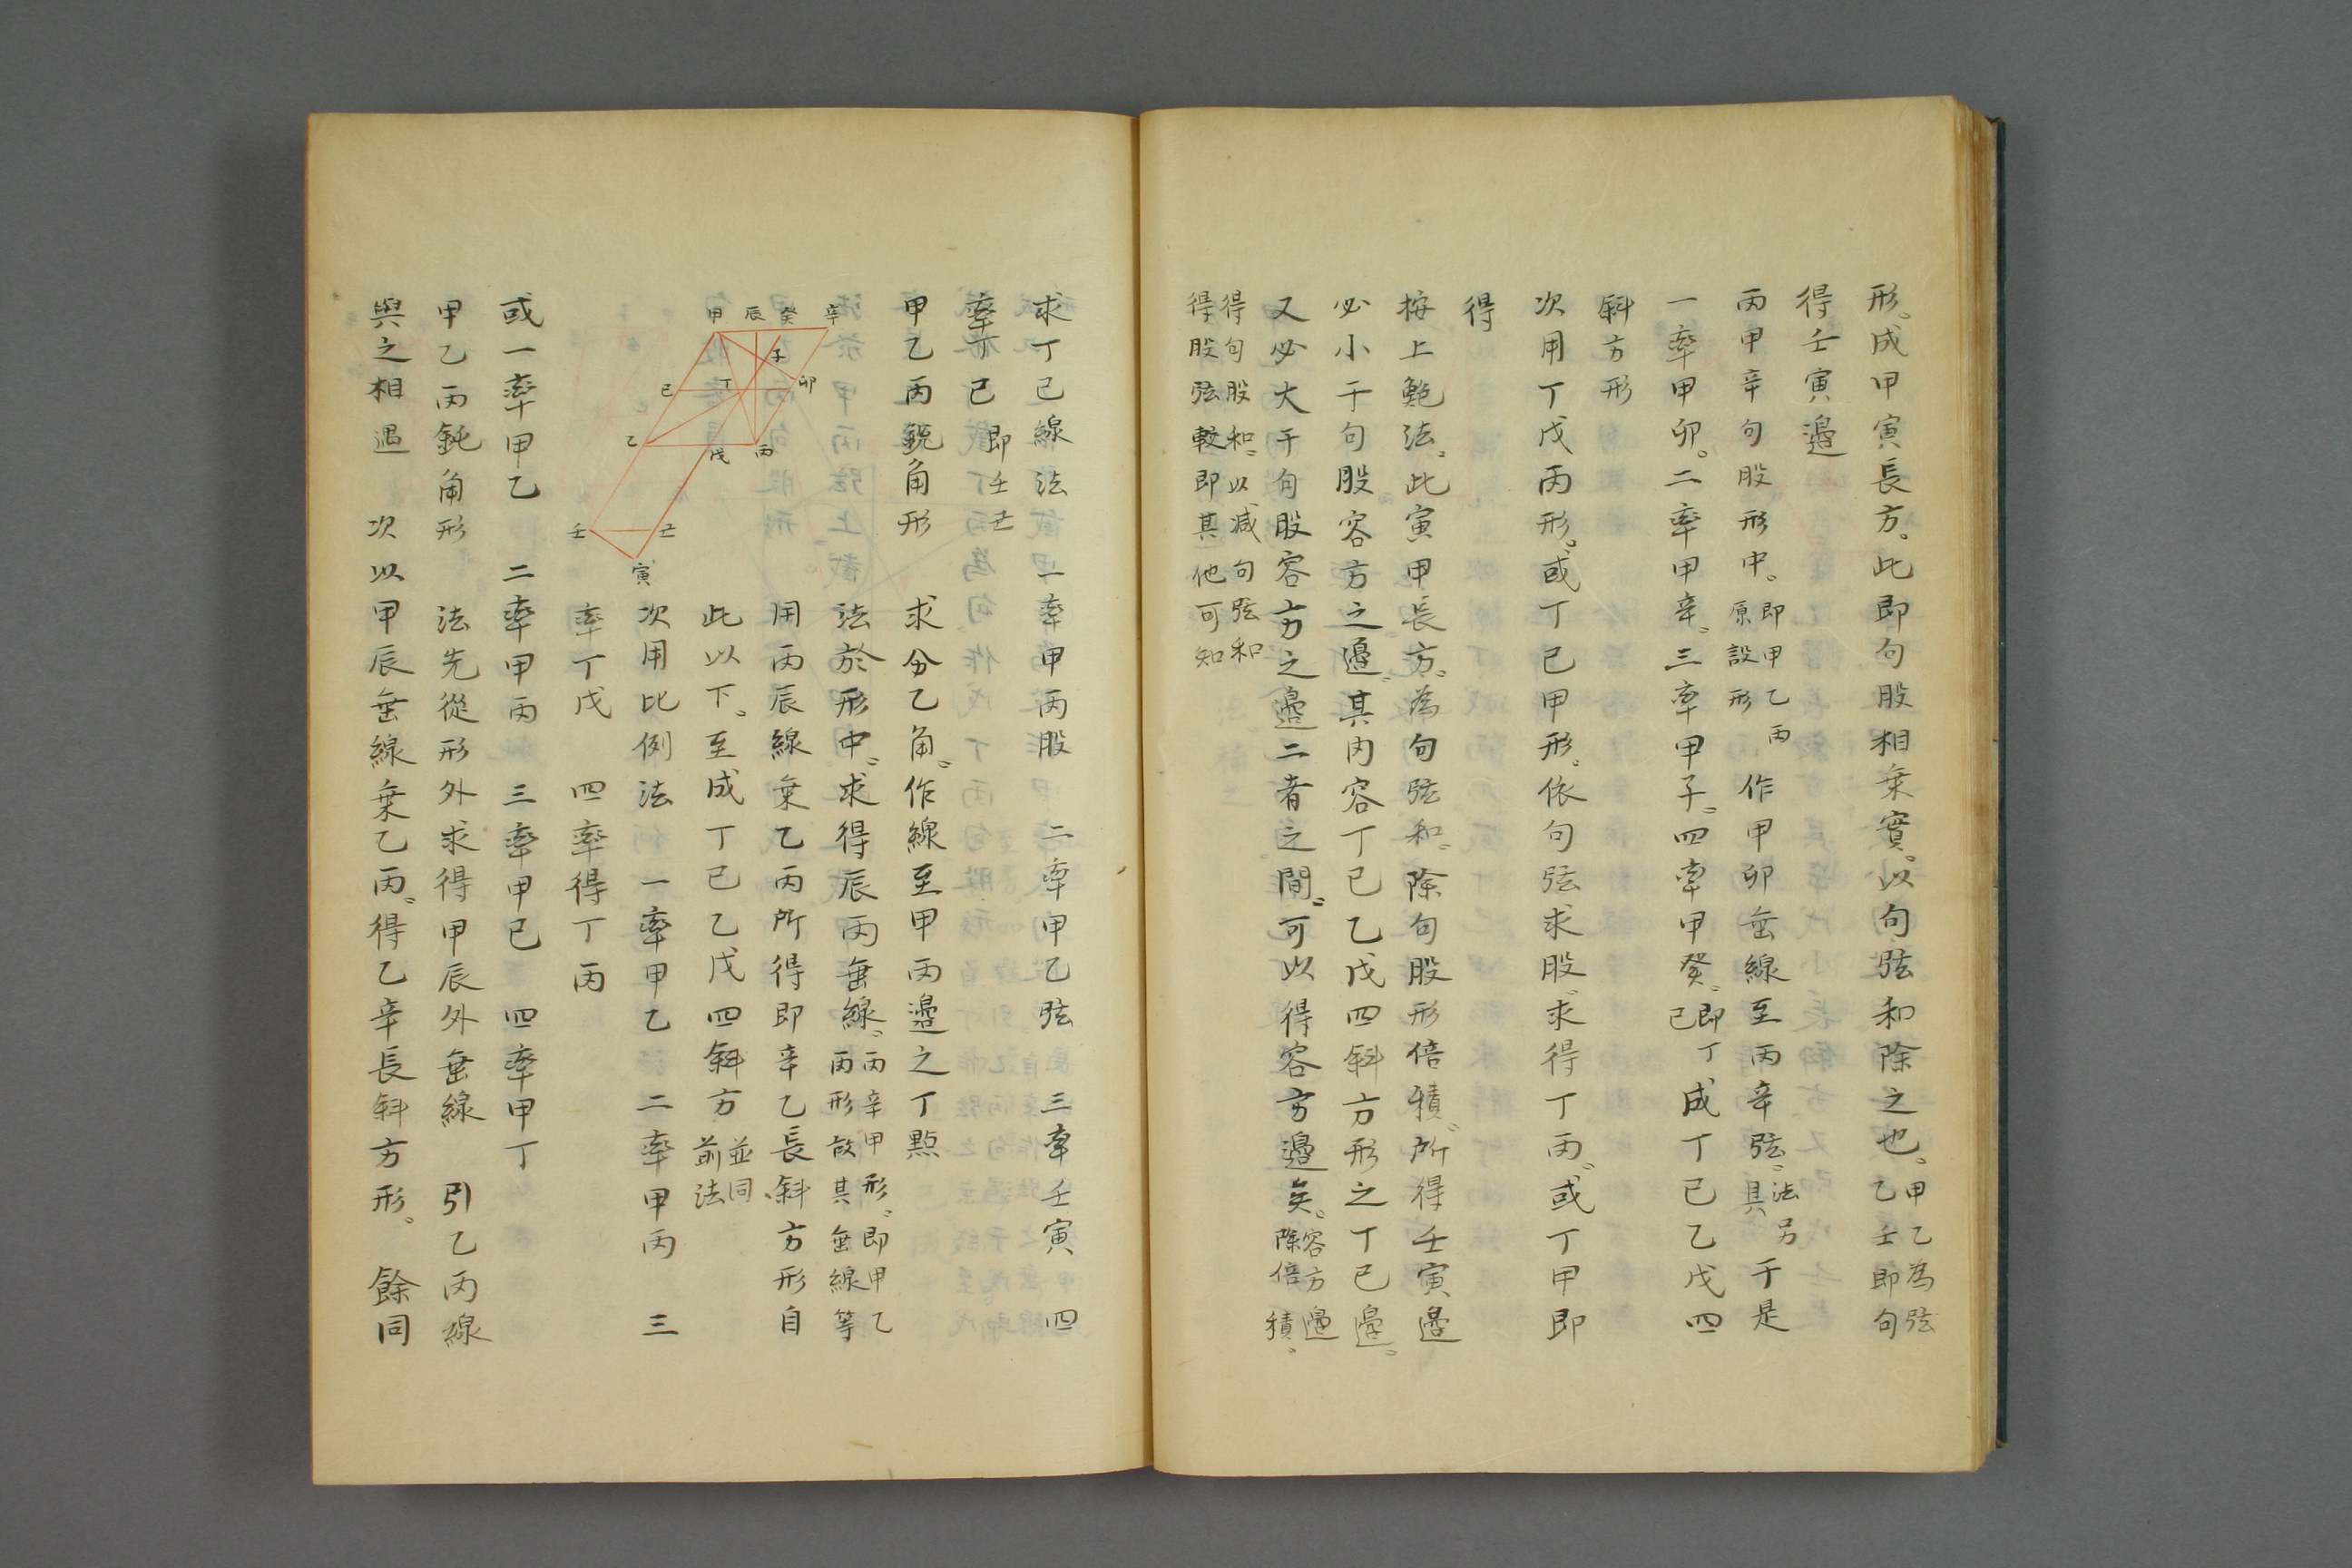 形。成甲寅長方。此即句股相乗實。以句弦和除之也。甲乙為弦乙壬即句
得壬寅邉
丙甲辛句股形中。即甲乙丙原設形 作甲卯垂線至丙辛弦。法另具 于是
一率甲卯。二率甲辛。三率甲子。四率甲癸。即丁己 成丁己乙戊四
斜方形
次用丁戊丙形。或丁己甲形。依句弦求股。求得丁丙。或丁甲即
得
按上鮑法。此寅甲長方。為句弦和。除句股形倍積。所得壬寅邉
必小于句股容方之邉。其内容丁己乙戊四斜方形之丁己邉。
又必大于句股容方之邉二者之間。可以得容方邉矣。容方邉除倍積。
得句股和。以减句弦和
得股弦較即其他可知
求丁己線法 一率甲丙股 二率甲乙弦 三率壬寅 四
率丁己 即壬丑
甲乙丙銳角形 求分乙角。作線至甲丙邉之丁點
法於形中。求得辰丙垂線。丙辛甲形。即甲乙丙形故其垂線等
用丙辰線乗乙丙所得即辛乙長斜方形自
此以下。至成丁己乙戊四斜方 並同前法
次用比例法 一率甲乙 二率甲丙 三
率丁戊 四率得丁丙
甲 辰 癸 辛
子
己 丁 卯
乙 戊 丙
壬 丑
寅
或一率甲乙 二率甲丙 三率甲己 四率甲丁
甲乙丙鈍角形 法先從形外求得甲辰外垂線 引乙丙線
與之相遇 次以甲辰垂線乗乙丙。得乙辛長斜方形。 餘同